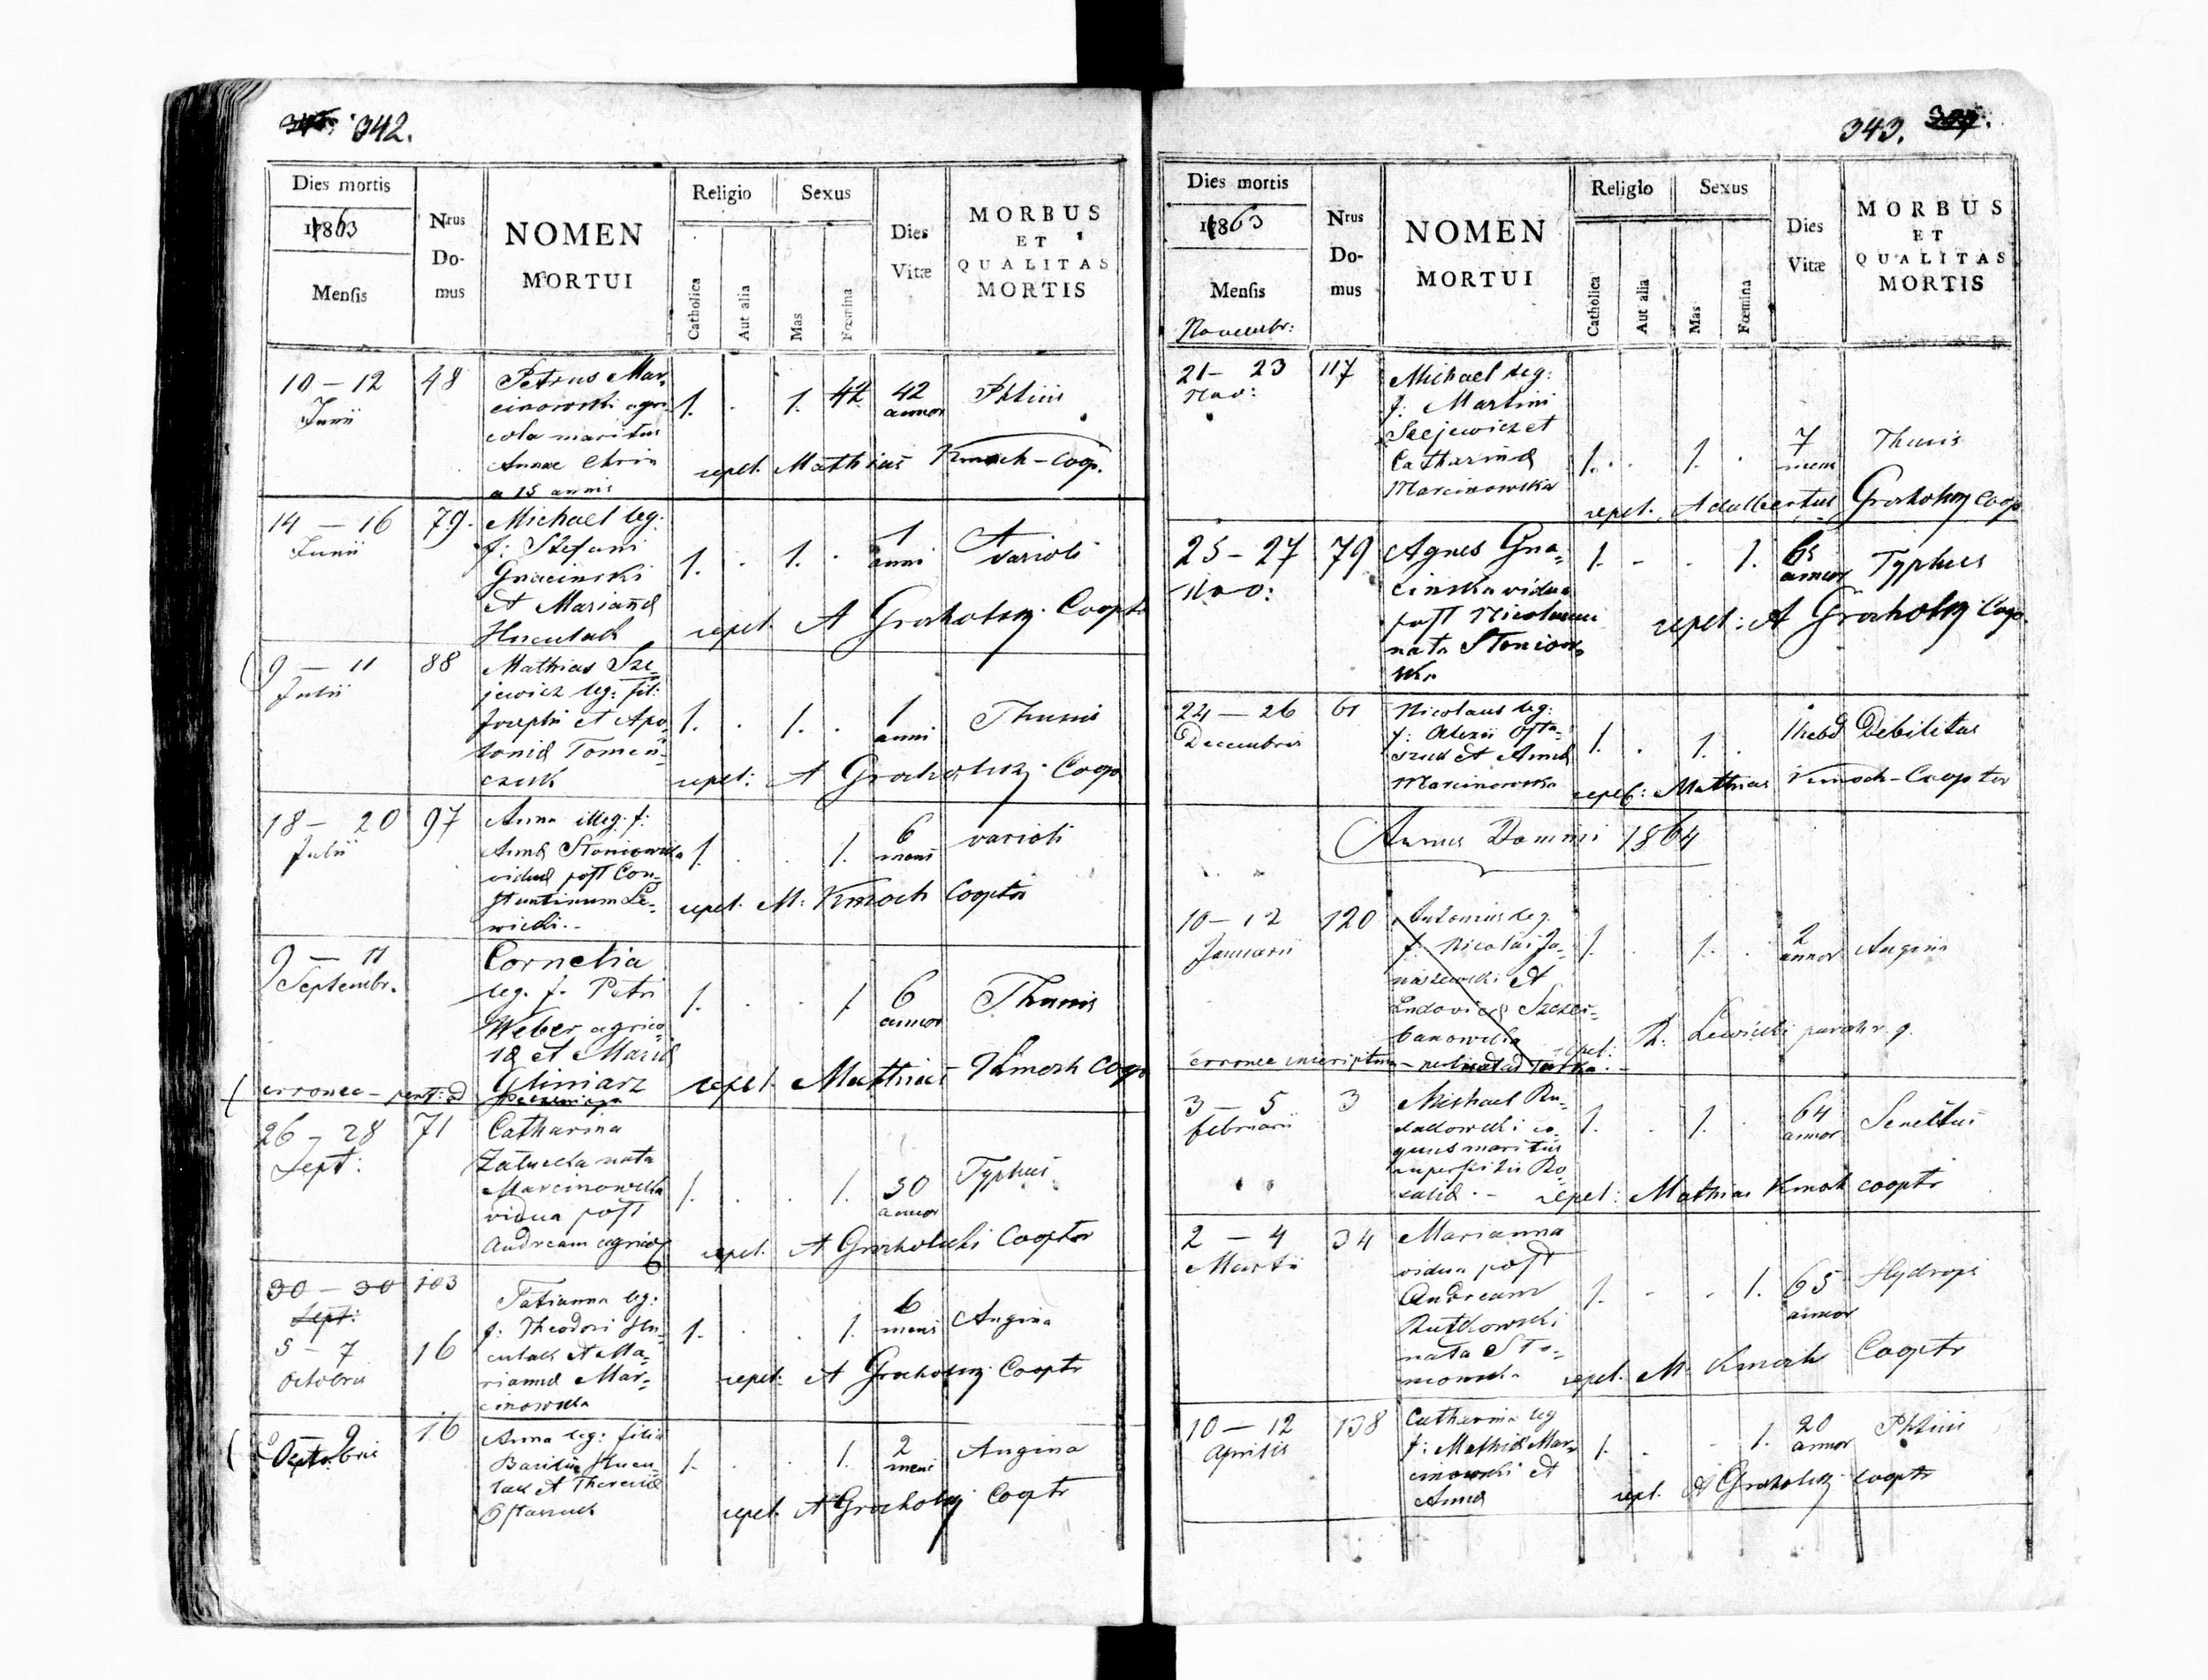 342.
Dies mortis
1863
Mensis
Nrus
Do-
mus
NOMEN
MORTUI
Religio
Catholica
Aut alia
Sexus
Mas
Fœmina
Dies
Vitæ
MORBUS
ET
QUALITAS
MORTIS
10 – 12
Junii
48
Petrus Mar-
cinowski agri
cola maritus
Annae
a 15 annis
1.
1.
42
42
annor
Phtisis
sepel. Mathias Kmoch – Coop.
14 – 16
Junii
79.
Michael leg.
f: Stefani
Gnacinski
et Mariannæ
Hucułak
1.
1.
1
anni
varioli
sepel. A Grocholsky Cooptr
9 – 11
Julii
88
Mathias Sze-
jewicz leg: fil:
Josephi et Apo-
loniæ Tomeń-
czuk
1.
1.
1
anni
Thussis
sepel: A Grocholsky Coop
18 – 20
Julii
97
Anna illeg. f:
Annæ Stoniowska
viduæ post Con-
stantinum Le-
wicki.
1.
1.
6
mens
varioli
sepel. M: Kmoch Cooptr
9 – 11
Septembr.
Cornelia
leg. f. Petri
Weber agrico-
læ et Mariæ
Gliniarz
1.
1
6
annor
Thussis
sepel. Mathias Kmoch Coop
erronee – pert: ad
26 – 28
Sept:
71
Catharina
Załucka nata
Marcinowska
vidua post
Andream agricol
1.
1.
30
annor
Typhus
sepel. A Grocholski Cooptor
30 – 30
Sept:
5 – 7
Octobris
103
16
Tatianna leg:
f: Theodori Hu-
culak et Ma-
riannæ Mar-
cinowska
1.
1.
6
mens
Angina
sepel: A Grocholsky Cooptr
9
Octobris
16
Anna leg: filia
Basilii Hucu-
lak et Theresiæ
Ostaszuk
1.
1.
2
mens
Angina
sepel. A Grocholsky Cooptr
343.
Dies mortis
1863
Mensis
Novembr:
Nrus
Do-
mus
NOMEN
MORTUI
Religio
Catholica
Aut alia
Sexus
Mas
Fœmina
Dies
Vitæ
MORBUS
ET
QUALITAS
MORTIS
21 – 23
Nov:
117
Michael leg:
f: Martini
Szejewicz et
Catharinæ
Marcinowska
1.
1.
7
mens
Thussis
sepel. Adalbertus Grocholsky Coop
25 – 27
Nov:
79
Agnes Gna-
cinska vidua
post Nicolaum
nata Stoniow-
ska
1.
1.
65
annor
Typhus
sepel: A Grocholsky Coop.
24 – 26
Decembris
61
Nicolaus leg:
f: Alexii Osta-
szuk et Annæ
Marcinowska
1.
1.
1 hebd
Debilitas
sepel: Mathias Kmoch – Cooptor
Annus Domini 1864
10 – 12
Januarii
120
Antonius leg.
f. Nicolai Ja-
naszewski et
Ludovicæ Szczer-
banowska
1.
1.
2
annor
Angina
sepel: Lewicki
erronee inscriptum –
3 – 5
februarii
3
Michael Ru-
maritus
superstitis Ro
saliæ. –
1.
1.
64
annor
Senectus
sepel: Mathias Kmoch cooptr
2 – 4
Martii
34
Marianna
vidua post
Andream
Rutkowski
nata Sto-
niowska
1.
1.
65
annor
Hydrops
sepel. M. Kmoch Cooptr
10 – 12
Aprilis
138
Catharina leg
f: Mathiæ Mar-
cinowski et
Annæ
1.
1.
20
annor
Phtisis
sepel. A Grocholsky cooptr